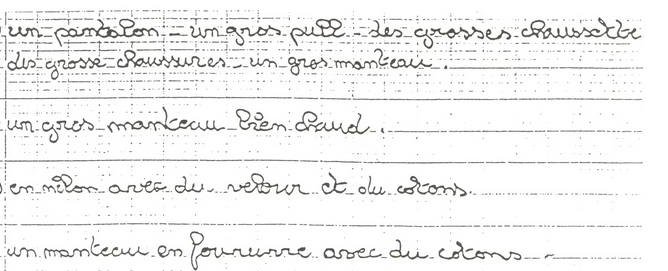 un pantalon - un gros pull - des grosses chaussette
des grosse chaussures - un gros manteau.
un gros manteau bien chaud.
en nilon avec du velour et du cotons.
un manteau en foururre avec du cotons -